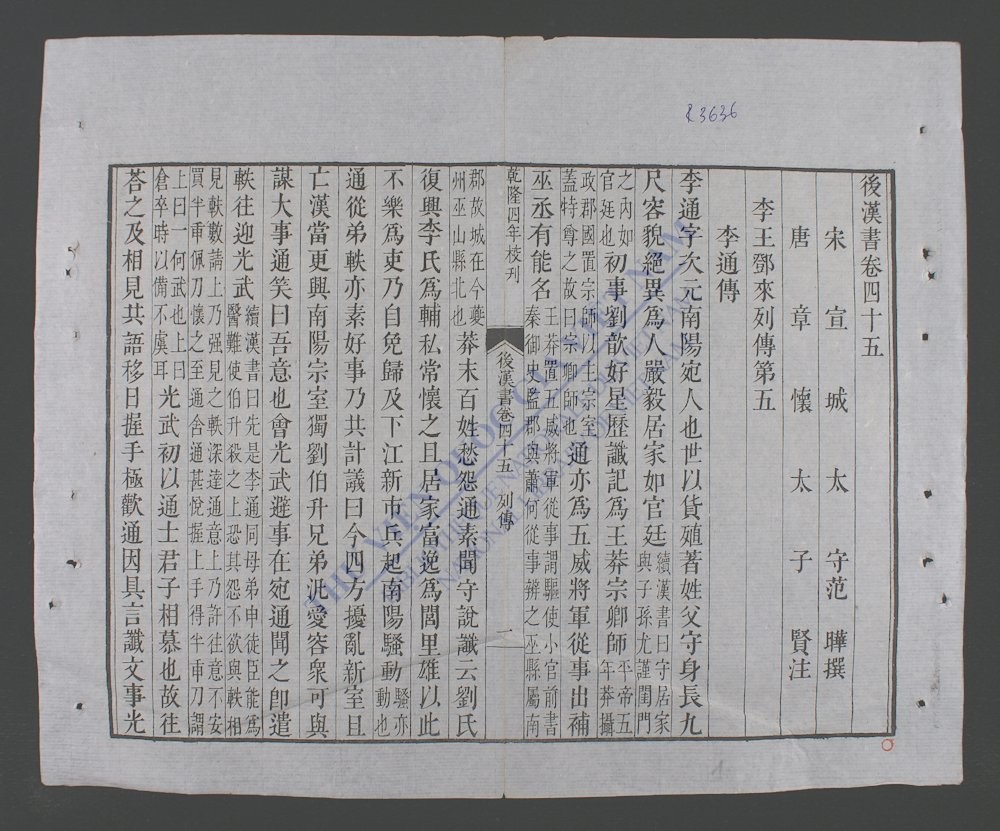 R.3636
後漢書卷四十五
宋宣城太守范曄撰
唐章懷太子賢注
李王鄧來列傳第五
李通傳
李通字次元南陽宛人也世以貨殖著姓父守身長九
尺容貌絕異爲人嚴毅居家如官廷續漢書曰守居家與子孫尤謹閨門
之內如官廷也初事劉歆好星歷讖記爲王莽宗卿師平帝五年莽攝
政郡國置宗師以主宗室蓋特尊之故曰宗卿師也通亦爲五威將軍從事出補
巫丞有能名王莽置五威將軍從事謂驅使小官前書秦御史監郡與蕭何從事辨之巫縣屬南
乾隆四年校刊
後漢書卷四十五 列傳
一
郡故城在今夔州巫山縣北也莽末百姓愁怨通素聞守說讖云劉氏
復興李氏爲輔私常懷之且居家富逸爲閭里雄以此
不樂爲吏乃自免歸及下江新市兵起南陽騷動騷亦動也
通從弟軼亦素好事乃共計議曰今四方擾亂新室且
亡漢當更興南陽宗室獨劉伯升兄弟汎愛容衆可與
謀大事通笑曰吾意也會光武避事在宛通聞之卽遣
軼往迎光武續漢書曰先是李通同母弟申徒臣能爲醫難使伯升殺之上恐其怨不欲與軼相
見軼數請上乃强見之軼深達通意上乃許往意不安買半臿佩刀懷之至通舍通甚悅握上手得半臿刀謂
上曰一何武也上曰倉卒時以備不虞耳光武初以通士君子相慕也故往
荅之及相見共語移日握手極歡通因具言讖文事光